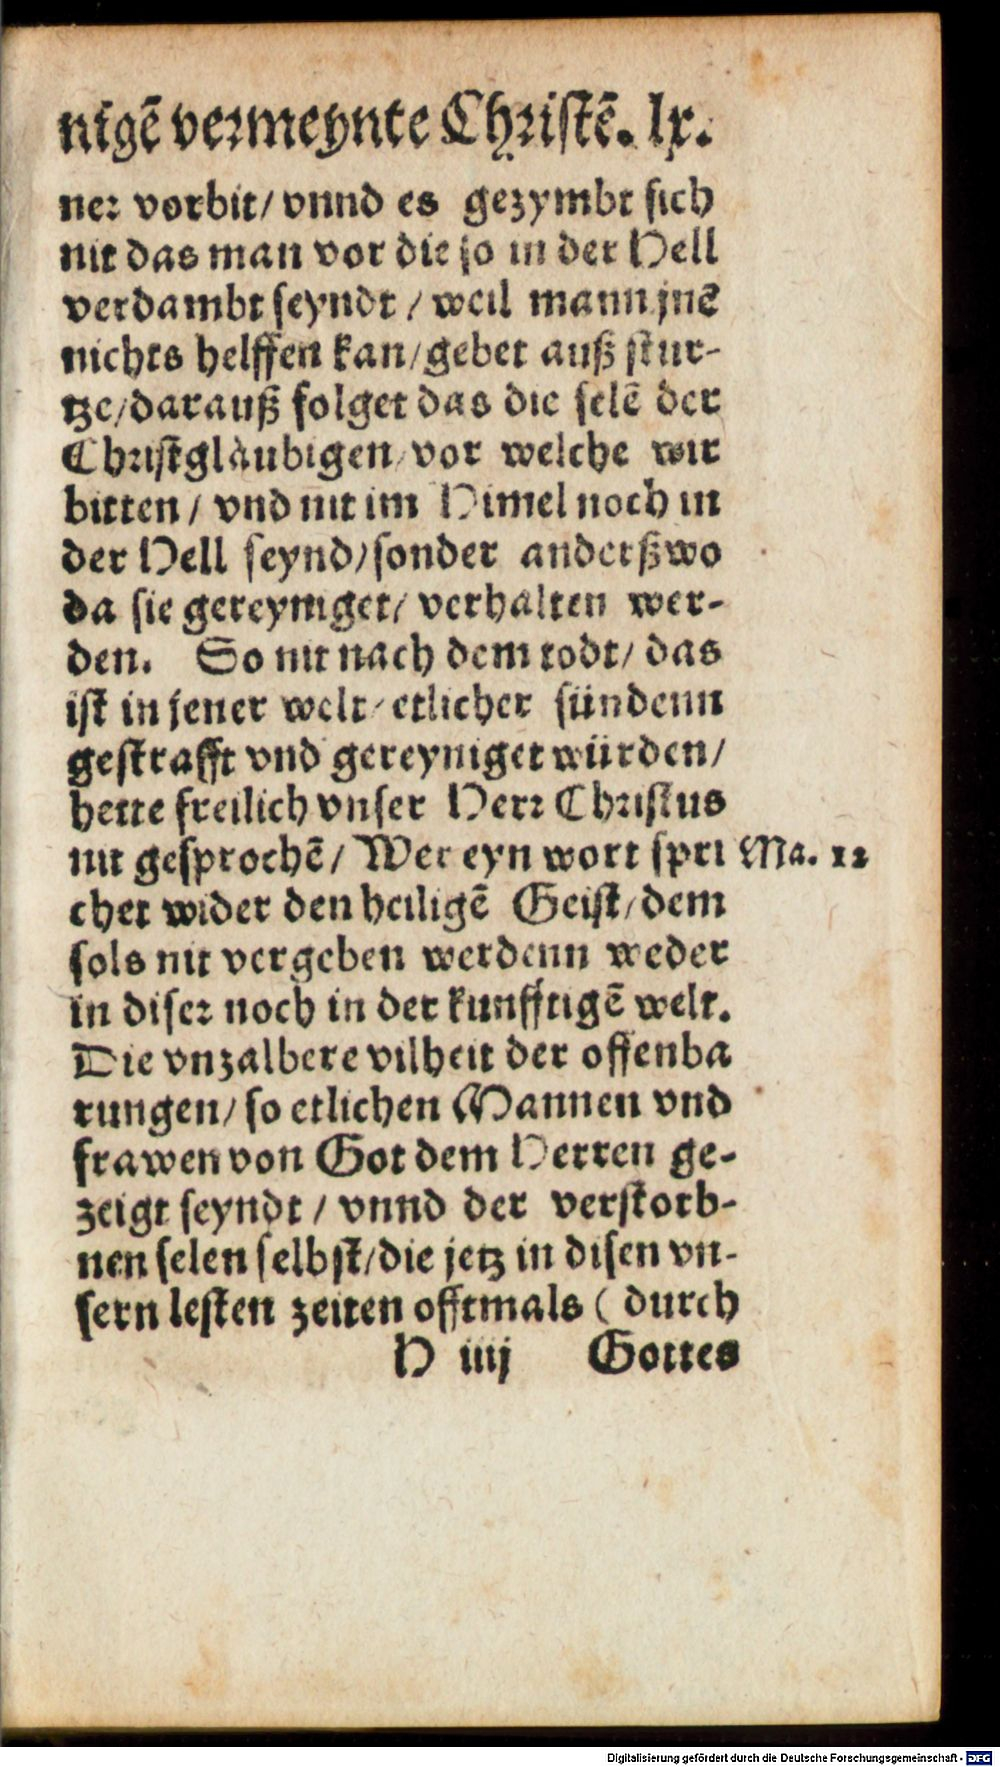 nigē vermeynte Christē. lx.
ner vorbit/ vnnd es gezymbt sich
nit das man vor die so in der Hell
verdambt seyndt / weil mann jnē
nichts helffen kan/gebet auß stür-
tze/darauß folget das die selē der
Christglaubigen/vor welche wir
bitten / vnd nit im Himel noch in
der Hell seynd/sonder anderßwo
da sie gereyniget/ verhalten wer-
den. So nit nach dem todt/ das
ist in jener welt/etlicher sündenn
gestrafft vnd gereyniget würden/
hette freilich vnser Herr Christus
nit gesprochē/ Wer eyn wort spri Ma. 12
chet wider den heiligē Geist/dem
sols nit vergeben werdenn weder
in diser noch in der kunfftigē welt.
Die vnzalbere vilheit der offenba
rungen/ so etlichen Mannen vnd
frawen von Got dem Herren ge-
zeigt seyndt / vnnd der verstorb-
nen selen selbst/die jetz in disen vn-
sern lesten zeiten offtmals ( durch
H iiij Gottes
Digitalisierung gefördert durch die Deutsche Forschungsgemeinschaft - DFG